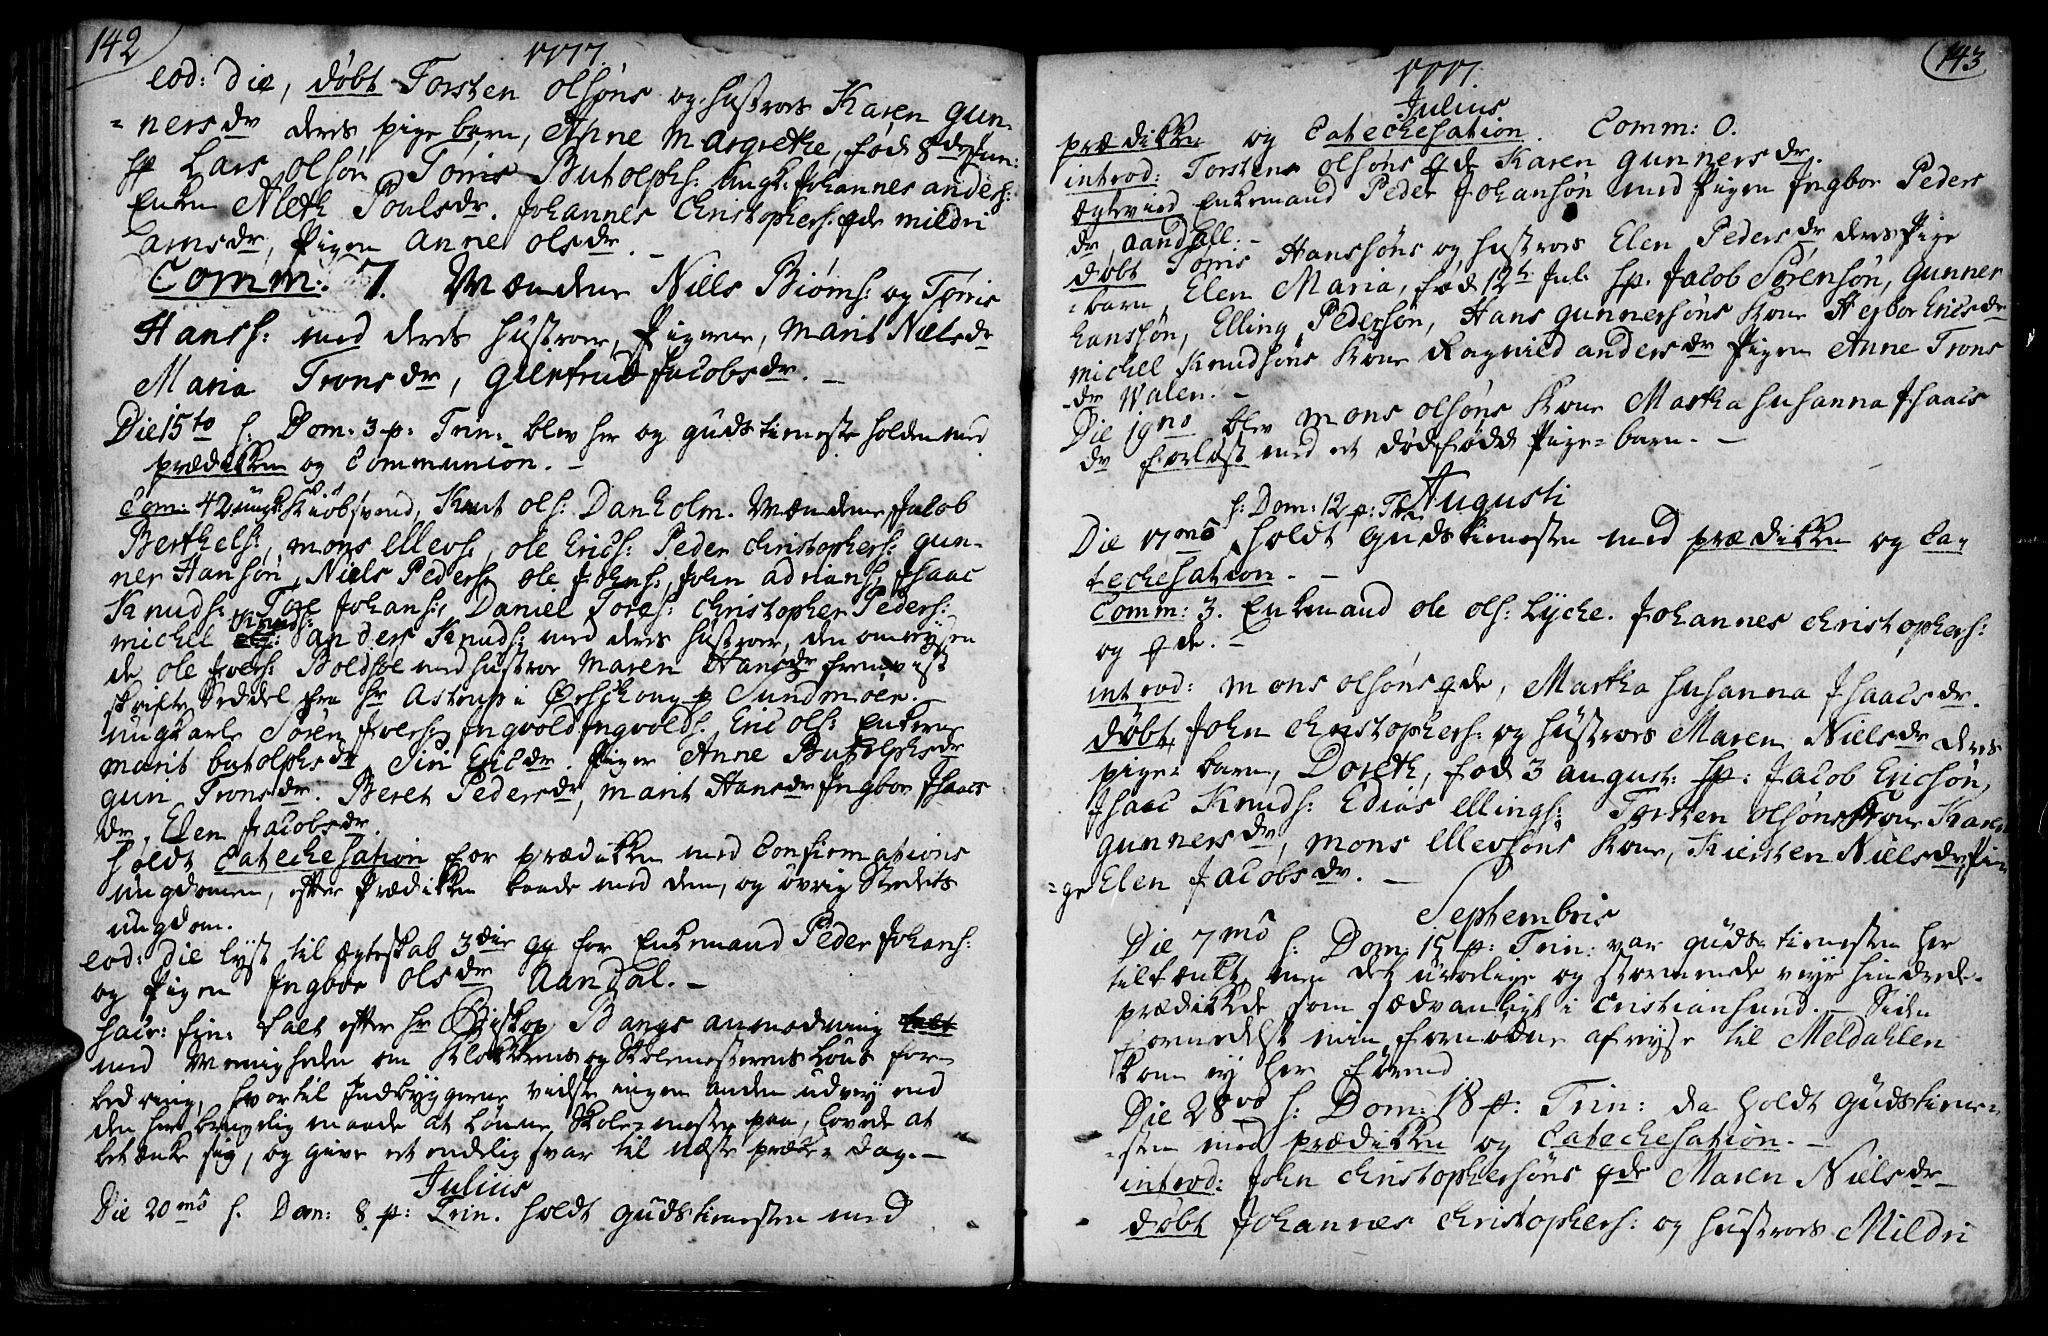 142
1777.
eod: die, døbt Torsten olsøns og hustroes Karen Gun-
=ners dr deres pige barn, Anne Margrethe, fød 8de Jun:
hp Lars olsøn, Tørris Butolphs: ungk: Johannes anders:
Enken Aleth Poulsdr. Johannes Christophers: qde mildri
arnsdr, Pigen Anne olsdr. -
Comm: 7. Mændene Niels Biørns: og Tørris
Hans: med deres hustroer, Pigerne, Marit Nielsdr
Maria Tronsdr, Giertrud Jacobsdr. -
Die 15to h: Dom: 3 p: Trin: blev her og gudstieneste holden med
prædikken og Communion. -
Com: 42 ungk: Kiøbsvend, Knut ols: Danholm. Mændene Jacob
Berthels:, mons Ellevs:, ole Erics: Peder Christophers: gun-
ner Hansøn, Niels Peders: ole Johns:, John adrians:, Isaac
Knuds: Tore Johans:, Daniel Toras: Christopher Peders:
michel Knuds: anders Knuds: med deres hustroer, den omreysen
de ole Ivers: Boldsøe med hustroe Maren Hansdr fremvist
skrifte Seddel fra Hr Astrup i Ørschoug p Sundmøer.
ungkarle Søren Ivers: Ingvold Ingvolds:, Eric ols: Enkerne
marit butolphsdr, Siri Ericsdr. Piger Anne Butolphsdr
gun Tronsdr. Beret Pedersdr, marit Hansdr Ingbor Isaacs
dr, Elen Jacobsdr.
holdt Catechesation for prædikken med Confirmations
ungdommen, efter Prædikken baade med dem, og øvrig Stedets
ungdom.
eod: die lyst til ægteskab 3die gg for Enkemand Peder Johans:
og Pigen Ingbor olsdr Aandal. -
sacr: fin: talt efter hr Biskop Bangs anmodning
med Menigheden om Klokkerens og Skolemesterens løns for-
bedring, hvortil Indbyggerne vidste ingen anden udvey end
den her brugelig maade at lønne Skole-mester paa, lovede at
betænke sig, og give et endelig svar til næste præke-dag. -
Julius
Die 20mo h. Dom: 8 p: Trin. holdt gudstienesten med
143
1777.
Julius
prædikken og Catechesation. Comm: 0.
introd: Torstens olsøns qde Karen gunnersdr.
Egtevied Enkemand Peder Johansøn med Pigen Ingbor Peders
dr aandall: -
døbt Tørris Hanssøns og hustroes Elen Pedersdr deres Pige
=barn, Elen Maria, fød 12te Jul: hp. Jacob Sørensøn, gunner
hanssøn, Elling Pedersøn, Hans gunnersøns Kone Hejbor Ericsdr
michel Knudsøns Kone Ragnild andersdr Pigen Anne Trons
-dr Walen. -
Die 19no blev mons olsøns Kone Martha susanna Isaacs
dr forløst med et dødfødd Pige-barn. -
Augusti
h: Dom: 12 p: Tr:
Die 17mo holdt gudstienesten med prædikken og Ca-
techesation. -
Comm: 3. Enkemand ole ols: Lycke. Johannes Christophers:
og qde. -
introd: mons olsøns qde, Martha susanna Isaacsdr.
døbt, John Christophers: og hustroes Maren Nielsdr deres
pige-barn, Doreth, fød 3 august: hp: Jacob Ericsøn,
Isaac Knuds: Edias Ellings: Torsten olsøns Kone Karen
gunnersdr, mons Ellevsøns Kone, Kiersten Nielsdr, Pi-
=ge Elen Jacobsdr. -
Septembris
Die 7mo h: Dom: 15 p: Trin: var gudstienesten her
tiltænkt, men det urolige og stormende veyr hindrede.
prædikkede som sædvanligt i Cristiansund. - Siden
formedelst min fornødne afreyse til Meldahlen
kom ey her førend
Die 28vo h: Dom: 18 p: Trin: da holdt Gudstiene-
=sten med prædikken og Catechesation. -
introd: John Christophersøns qde Maren Nielsdr-
døbt Johannes Christophers: og hustroes Mildri